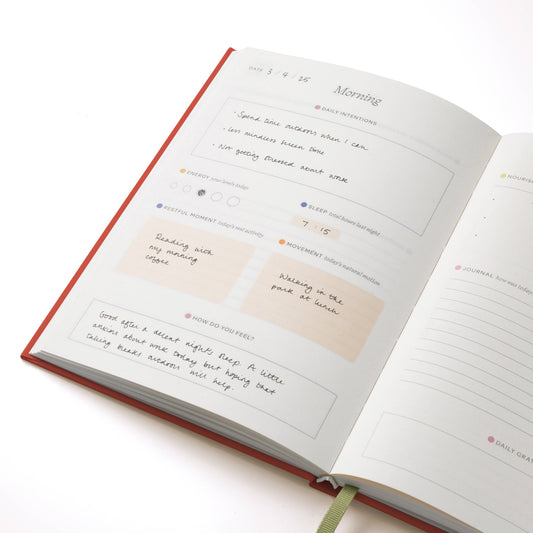 DATE 3 / 4 / 25
Morning
DAILY INTENTIONS
· Spend time outdoors when I can
· less mindless screen time
· Not getting stressed about work
ENERGY your levels today
SLEEP total hours last night
7 : 15
RESTFUL MOMENT today's rest activity
Reading with
my morning
coffee
MOVEMENT today's natural motion
Walking in the
park at lunch
HOW DO YOU FEEL?
Good after a decent night's sleep. A little
anxious about work today but hoping that
taking breaks outdoors will help.
NOURIS
JOURNAL how was today
DAILY GRAT